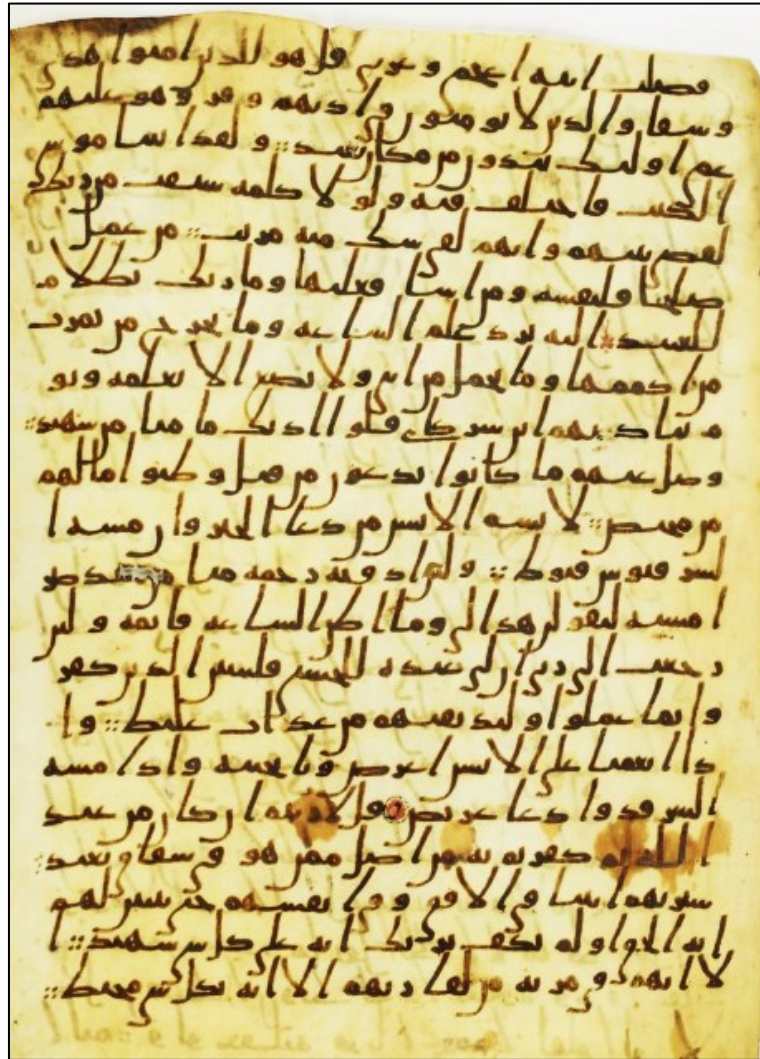 فصلت ايته اعجمي وعربي قل هو للذين امنوا هدى
وشفا والذين لا يومنون في اذنهم وقر وهو عليهم
عمى اوليك يندون من مكان بعيد :: ولقد اتينا موسى
الكتب فاختلف فيه ولولا كلمه سبقت من ربك
لقضي بينهم وانهم لفي شك منه مريب :: من عمل
صلحا فلنفسه ومن اسا فعليها وما ربك بظلام
للعبيد :: اليه يرد علم الساعه وما تخرج من ثمرت
من اكممها وما تحمل من انثى ولا تضع الا بعلمه ويو
م يناديهم اين شركاي قلوا اذنك ما منا من شهيد ::
وضل عنهم ما كانوا يدعون من قبل وظنوا ما لهم
من محيص :: لا يسم الانسن من دعا الخير وان مسه ا
لشر فيوس قنوط :: ولين اذقنه رحمه منا من بعد ضر
ا مسته ليقولن هذا لي وما اظن الساعه قايمه ولين
رجعت الى ربي ان لي عنده للحسنى فلننبين الذين كفر
وا بما عملوا ولنذيقنهم من عذاب غليظ :: وا
ذا انعمنا على الانسن اعرض ونا بجنبه واذا مسه
الشر فذوا دعا عريض قل اريتم ان كان من عند
الله ثم كفرتم به من اضل ممن هو في شقاق بعيد ::
سنريهم ايتنا في الافق وفي انفسهم حتى يتبين لهم
انه الحق اولم يكف بربك انه على كل شي شهيد :: ا
لا انهم في مريه من لقا ربهم الا انه بكل شي محيط ::